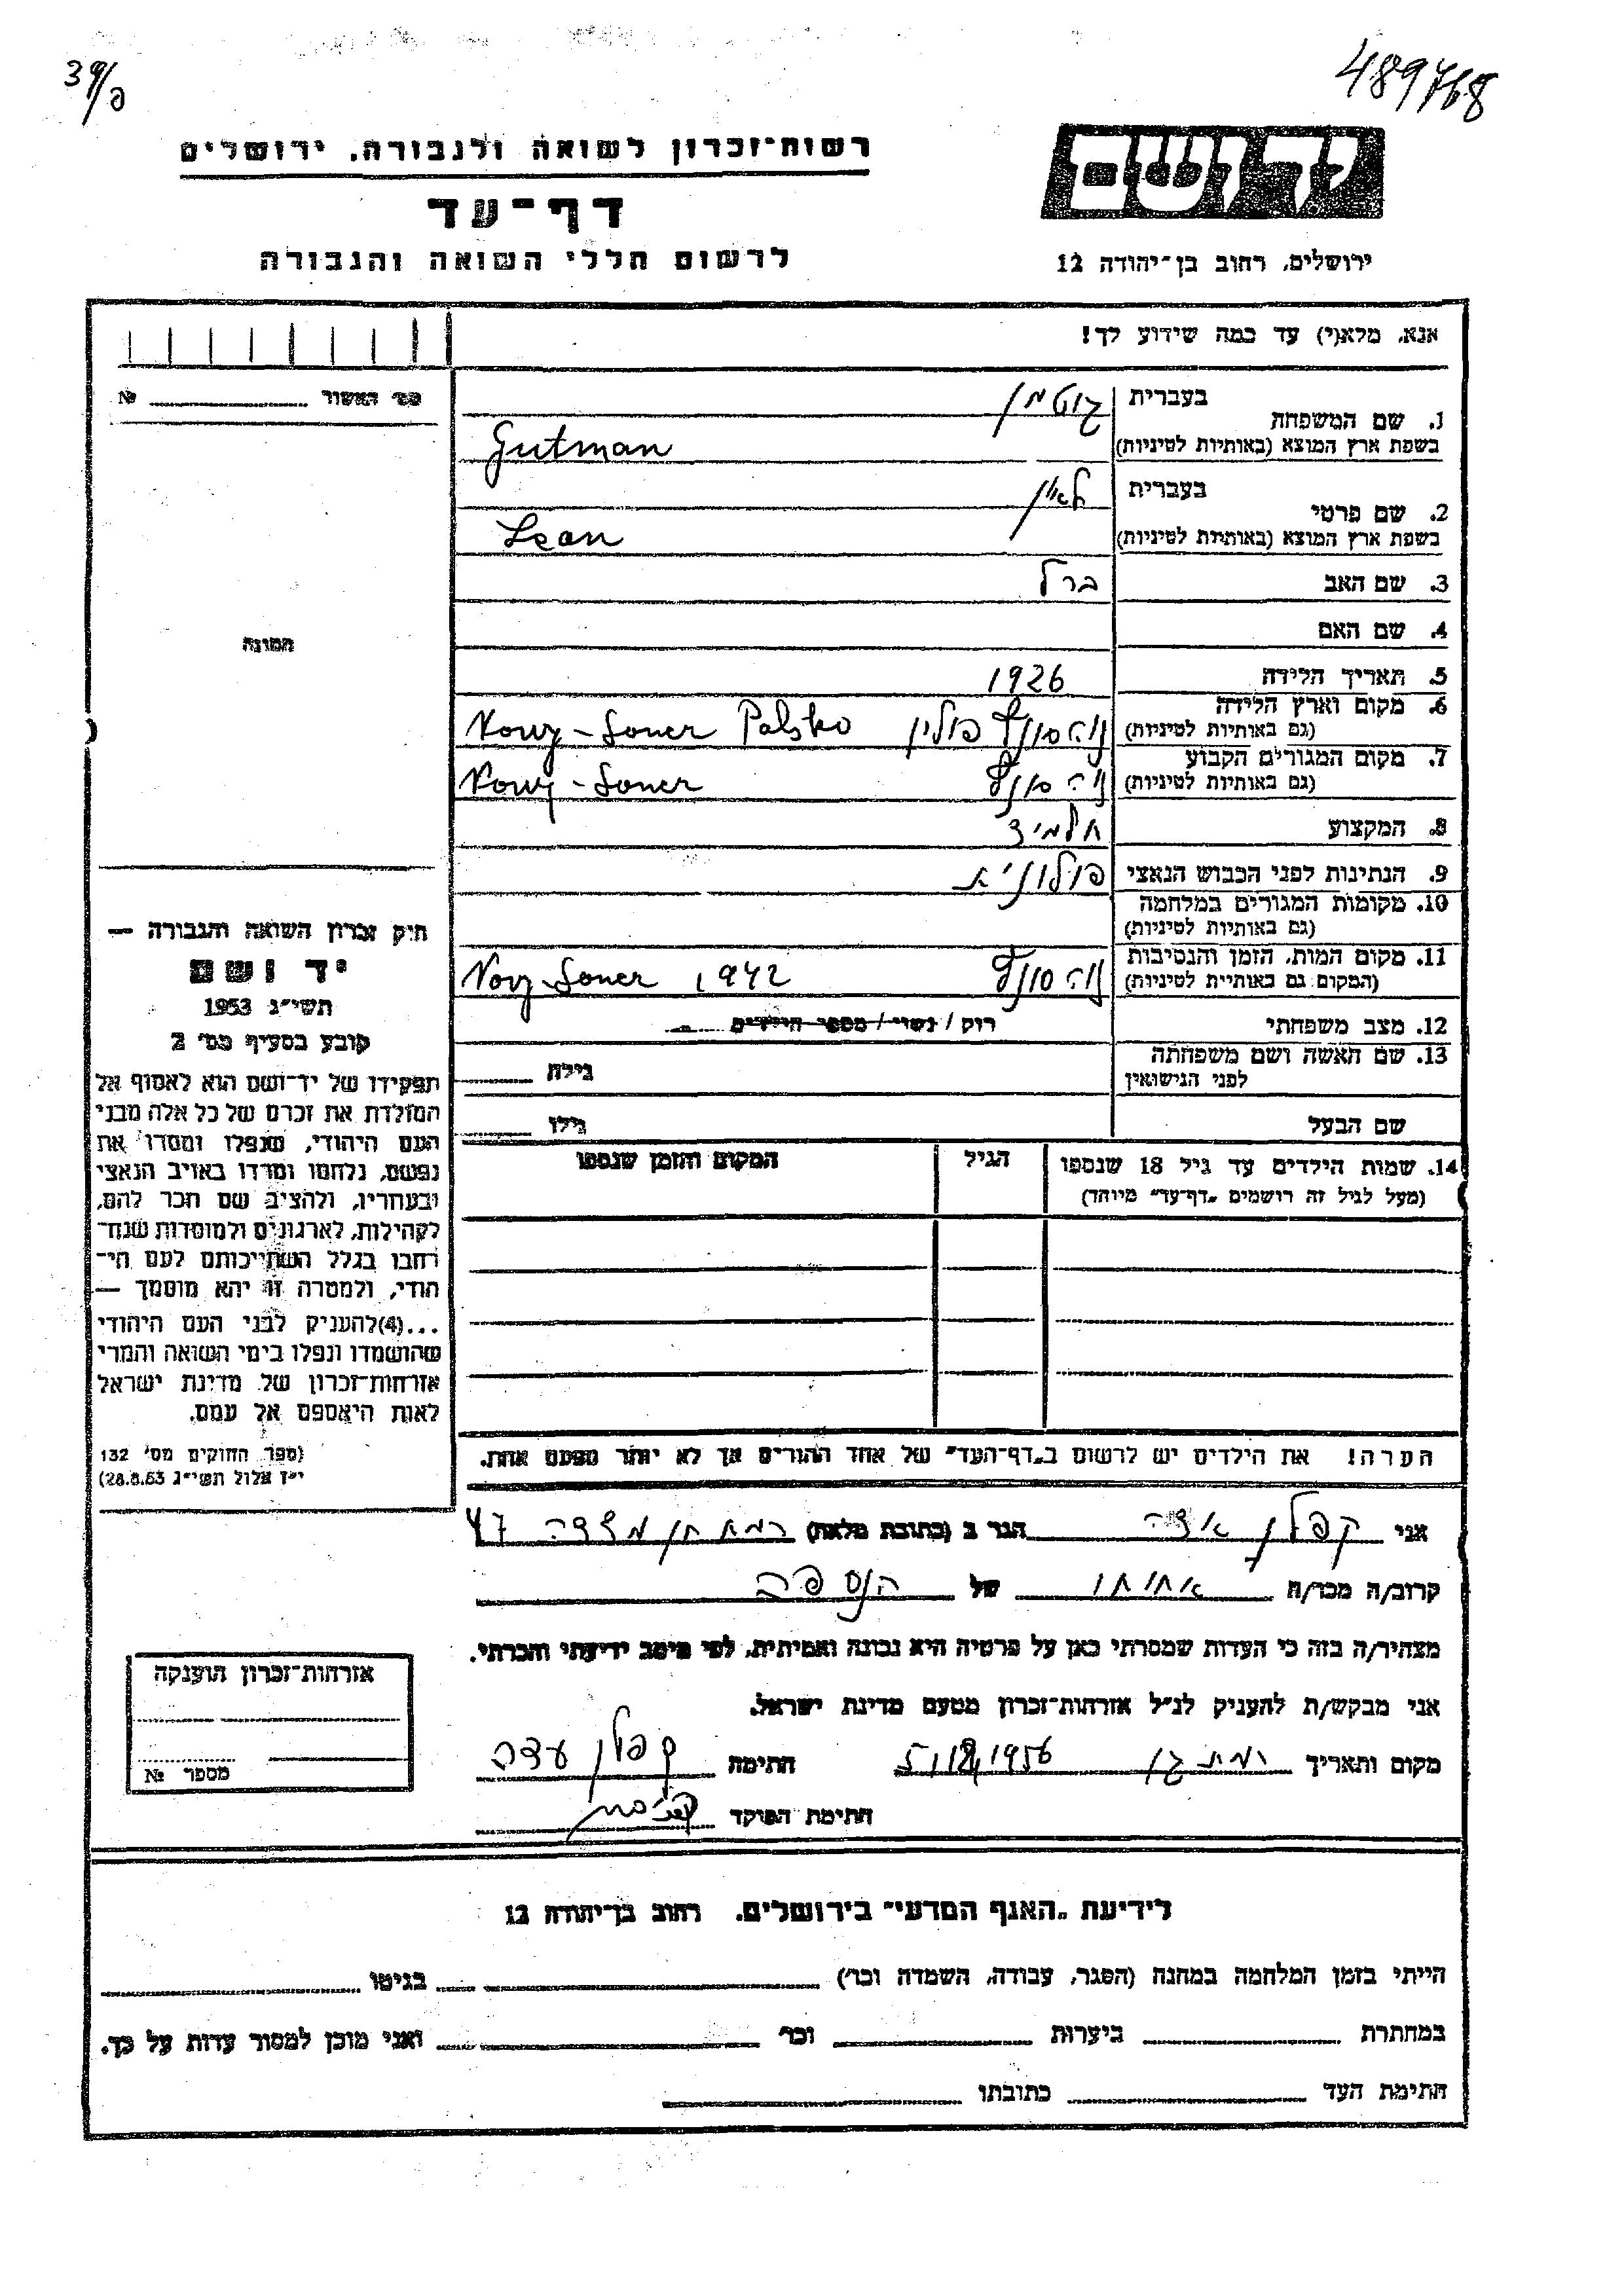 39/פ
489768
רשות־זכרון לשואה ולגבורה, ירושלים
דף־עד
לרשום חללי השואה והגבורה
יד ושם
ירושלים, רחוב בן־יהודה 12
אנא, מלא(י) עד כמה שידוע לך!
מס׳ האשור № 
1. שם המשפחה
בעברית גוטמן
בשפת ארץ המוצא (באותיות לטיניות) Gutman
2. שם פרטי
בעברית לאון
בשפת ארץ המוצא (באותיות לטיניות) Leon
3. שם האב ברל
4. שם האם
5. תאריך הלידה 1926
6. מקום וארץ הלידה
(גם באותיות לטיניות) פולין Nowy-Soncz Polsko
7. מקום המגורים הקבוע
(גם באותיות לטיניות) Nowy-Soncz
8. המקצוע תלמיד
9. הנתינות לפני הכבוש הנאצי פולונית
10. מקומות המגורים במלחמה
(גם באותיות לטיניות)
11. מקום המות, הזמן והנסיבות
(המקום גם באותיית לטיניות) Novy-Soncz 1942
12. מצב משפחתי רווק / נשוי / מספר הילדים
13. שם האשה ושם משפחתה
לפני הנישואין גילה
שם הבעל גילו
14. שמות הילדים עד גיל 18 שנספו הגיל המקום והזמן שנספו
(מעל לגיל זה רושמים „דף־עד" מיוחד)
הערה! את הילדים יש לרשום ב„דף־העד" של אחד ההורים אך לא יותר מפעם אחת.
תמונה
חוק זכרון השואה והגבורה —
יד ושם
תשי״ג 1953
קובע בסעיף מס׳ 2
תפקידו של יד־ושם הוא לאסוף אל
המולדת את זכרם של כל אלה מבני
העם היהודי, שנפלו ומסרו את
נפשם, נלחמו ומרדו באויב הנאצי
ובעוזריו, ולהציב שם וזכר להם,
לקהילות, לארגונים ולמוסדות שנח־
רבו בגלל השתייכותם לעם הי־
הודי, ולמטרה זו יהא מוסמך —
...(4)להעניק לבני העם היהודי
שהושמדו ונפלו בימי השואה והמרי
אזרחות־זכרון של מדינת ישראל
לאות היאספם אל עמם.
(ספר החוקים מס׳ 132
י״ז אלול תשי״ג 28.8.53)
אני קפלן הגר ב (כתובת מלאה) 47
קרוב/ה מכר/ה אחותו של הנספה
מצהיר/ה בזה כי העדות שמסרתי כאן על פרטיה היא נכונה ואמיתית, לפי מיטב ידיעתי והכרתי.
אני מבקש/ת להעניק לנ״ל אזרחות־זכרון מטעם מדינת ישראל.
מקום ותאריך רמת גן 1956 חתימה קפלן עדה
חתימת הפוקד
אזרחות־זכרון הוענקה
מספר №
לידיעת „האגף המדעי" בירושלים, רחוב בן־יהודה 12
הייתי בזמן המלחמה במחנה (הסגר, עבודה, השמדה וכו׳) בגיטו
במחתרת ביערות וכו׳ ואני מוכן למסור עדות על כך.
חתימת העד כתובתו